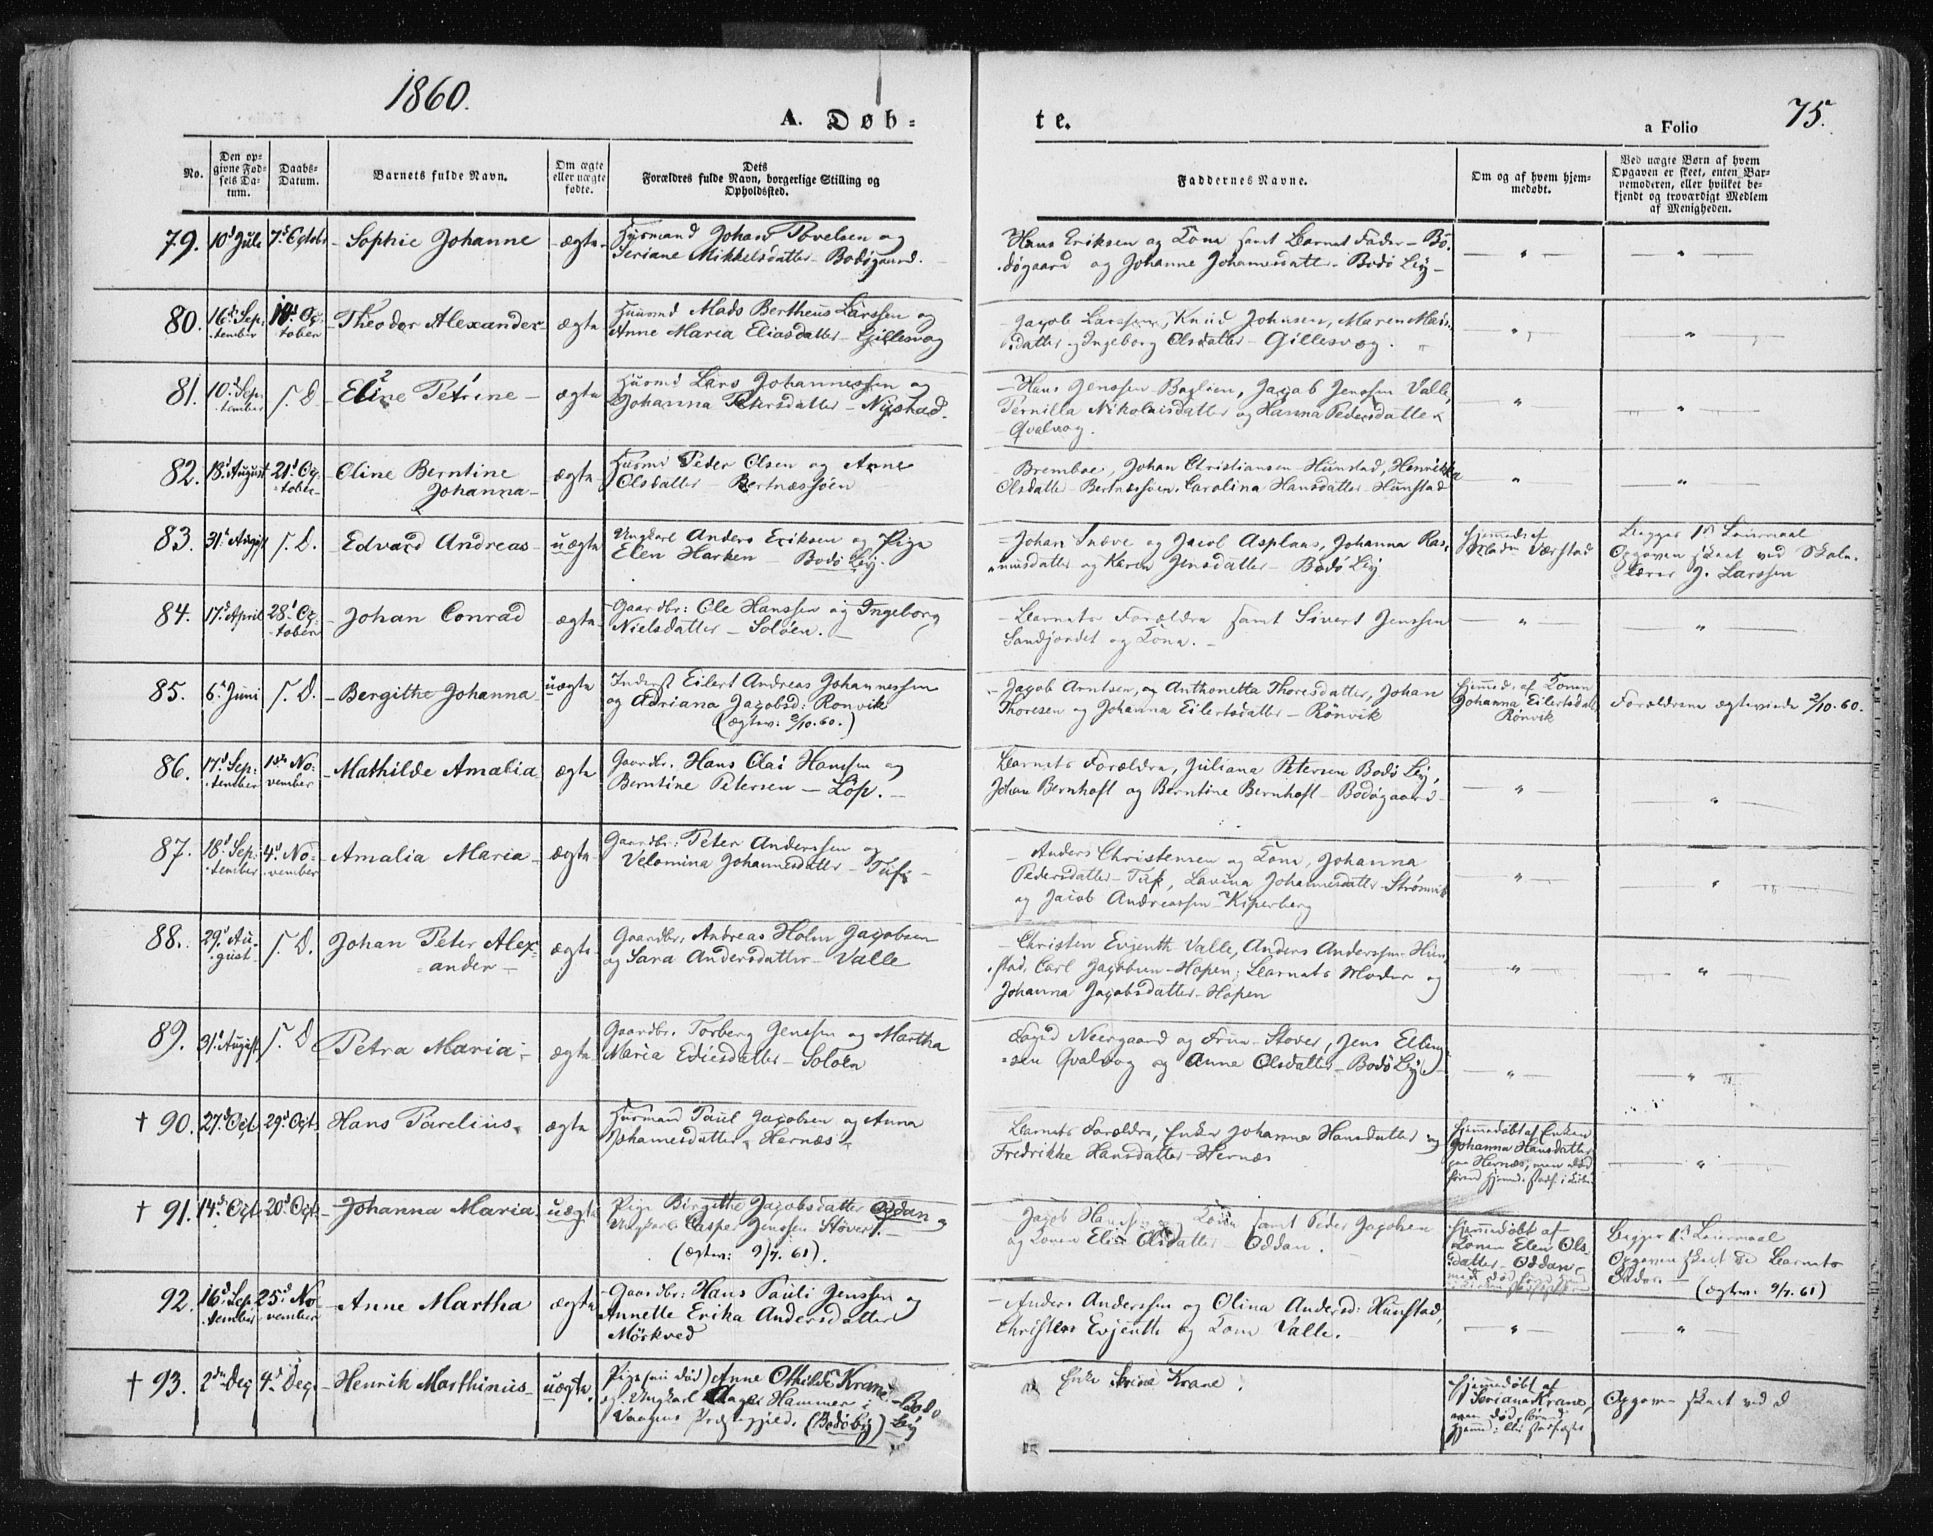 1860.
A. Døb-
te.
a Folio
75.
No.
Den op-
givne Fød-
sels Da-
tum.
Daabs-
Datum.
Barnets fulde Navn.
Om ægte
eller uægte
fødte.
Dets
Forældres fulde Navn, borgerlige Stilling og
Opholdssted.
Faddernes Navne.
Om og af hvem hjem-
medøbt.
Ved uægte Børn af hvem
Opgaven er skeet, enten Bar-
nemoderen, eller hvilket be-
kjendt og troværdigt Medlem
af Menigheden.
79. 10d Juli 7d Octobr Sophie Johanne ægte
Huusmand Johan Povelsen og
Seriane Mikkelsdatter - Bodøgaard.
Hans Eriksen og Kone samt Barnets Fader - Bo-
døgaard og Johanne Johannesdatter - Bodø By -
80. 16d Sep- 14d Oc- Theodor Alexander ægte
tember tober
Huusmd Mads Bertheus Larssen og
Anne Maria Eliasdatter - Gillesvog
Jacob Larssen, Knud Johnsen, Maren Mas-
datter og Ingeborg Olsdatter - Gillesvog.
81. 10d Sep- s. D. Eline 2 Petrine 1 - ægte
tember
Husmd Lars Johannessen og
Johanna Petersdatter - Nystad.
Hans Jenssen Bagløen, Jacob Jenssen Valle,
Pernilla Nikolaisdatter og Hanna Pedersdatter
Qvalvog.
82. 18d August 21d Oc- Oline Berntine ægte
tober Johanna -
Husmd Peder Olsen og Anne
Olsdatter - Bertnæssøen
Bremboe, Johan Christiansen Hunstad, Henrikka
Olsdatter - Bertnæssøen, Carolina Hansdatter - Hunstad
83. 31d August s. D. Edvard Andreas - uægte
Ungkarl Anders Eriksen og Pige
Elen Harken - Bodø By.
Johan Snøve og Jacob Asplaas, Johanna Ras-
musdatter og Karen Jensdatter - Bodø By
Hjemmed. af
Værstad
Begges 1st Leiermaal
Opgaven skeet ved Skole-
lærer J. Larssen
84. 17d April 28d Oc- Johan Conrad ægte
tober
Gaardbr: Ole Hanssen og Ingeborg
Nielsdatter - Soløen.
Barnets Forældre samt Sivert Jenssen
Sandjordet og Kone. -
85. 6d Juni s. D. Bergithe Johanna uægte
Inderst Eilert Andreas Johannessen
og Adriana Jacobsd: Rønvik
(ægtev: 2/10.60.)
Jacob Arntsen, og Anthonetta Thoresdatter, Johan
Thoresen og Johanna Eilertsdatter - Rønvik
Hjemmed. af Konen
Johanna Eilertsdat
Rønvik
Forældrene ægteviede 2/10.60.
86. 17d Sep- 1ste No- Mathilde Amalia ægte
tember vember
Gaardbr. Hans Olai Hansen og
Berntine Petersen - Løp. -
Barnets Forældre, Juliana Petersen Bodø By,
Johan Bernhoft og Berntine Bernhoft - Bodøgaard -
87. 18d Sep- 4d No- Amalia Maria ægte
tember vember
Gaardbr: Peter Anderssen og
Velomina Johannesdatter -
Anders Christensen og Kone, Johanna
Pedersdatter - Lavina Johannesdatter Strømvik
og Jacob Andreassen - Kiperberg
88. 29d Au- s. D. Johan Peter Alex- ægte
gust ander -
Gaardbr. Andreas Holm Jacobsen
og Sara Andersdatter - Valle
Christen Evjenth Valle, Anders Anderssen Hun-
stad, Carl Jacobsen - Hopen; Barnets Moder og
Johanna Jacobsdatter - Hopen
89. 31d August s. D. Petra Maria - ægte
Gaardbr. Torberg Jenssen og Martha
Maria Ediesdatter - Soløen
Foged Neergaard og Frue - Støver, Jens Elling-
sen Qvalvog og Anne Olsdatter - Bodø By -
† 90. 27d Oct. 29d Oct. Hans Parelius ægte
Husmand Paul Jacobsen og Anna
Johannesdatter Hernæs -
Barnets Forældre, Enke Johanna Hansdatter og
Fredrikke Hansdatter - Hernæs
Hjemmedøbt af Enken
Johanna Hansdatter
paa Hernæs; men død
† 91. 14d Oct. 20d Oct. Johanna Maria uægte
Pige Birgithe Jacobsdatter Oddan og
Ungkarl Casper Jenssen Støver. -
(ægtev: 9/7. 61).
Jacob Hans og Kone samt Peder Jacobsen
og Konen Elen Olsdatter - Oddan.
Hjemmedøbt af
Konen Elen Ols-
datter - Oddan,
Begges 1st Leiermaal
Opgaven skeet ved Barnets
Fader. - (ægtev: 9/7. 61)
92. 16d Sep- 25d No- Anne Martha ægte
tember vember
Gaardbr: Hans Pauli Jenssen og
Annette Erika Andersdatter
Mørkved
Anders Anderssen og Olina Andersd: Hunstad,
Christen Evjenth og Kone Valle. -
† 93. 2den Dec. 4d Dec. Henrik Marthinus - uægte.
Pige (nu død) Anne Othilde Krane - Bodø
og Ungkarl Hammer i By
Vaagens Præstegjeld. (Bodøby)
Enke Serine Krane.
Hjemmedøbt af
Seriana Krane,
Opgaven skeet ved d